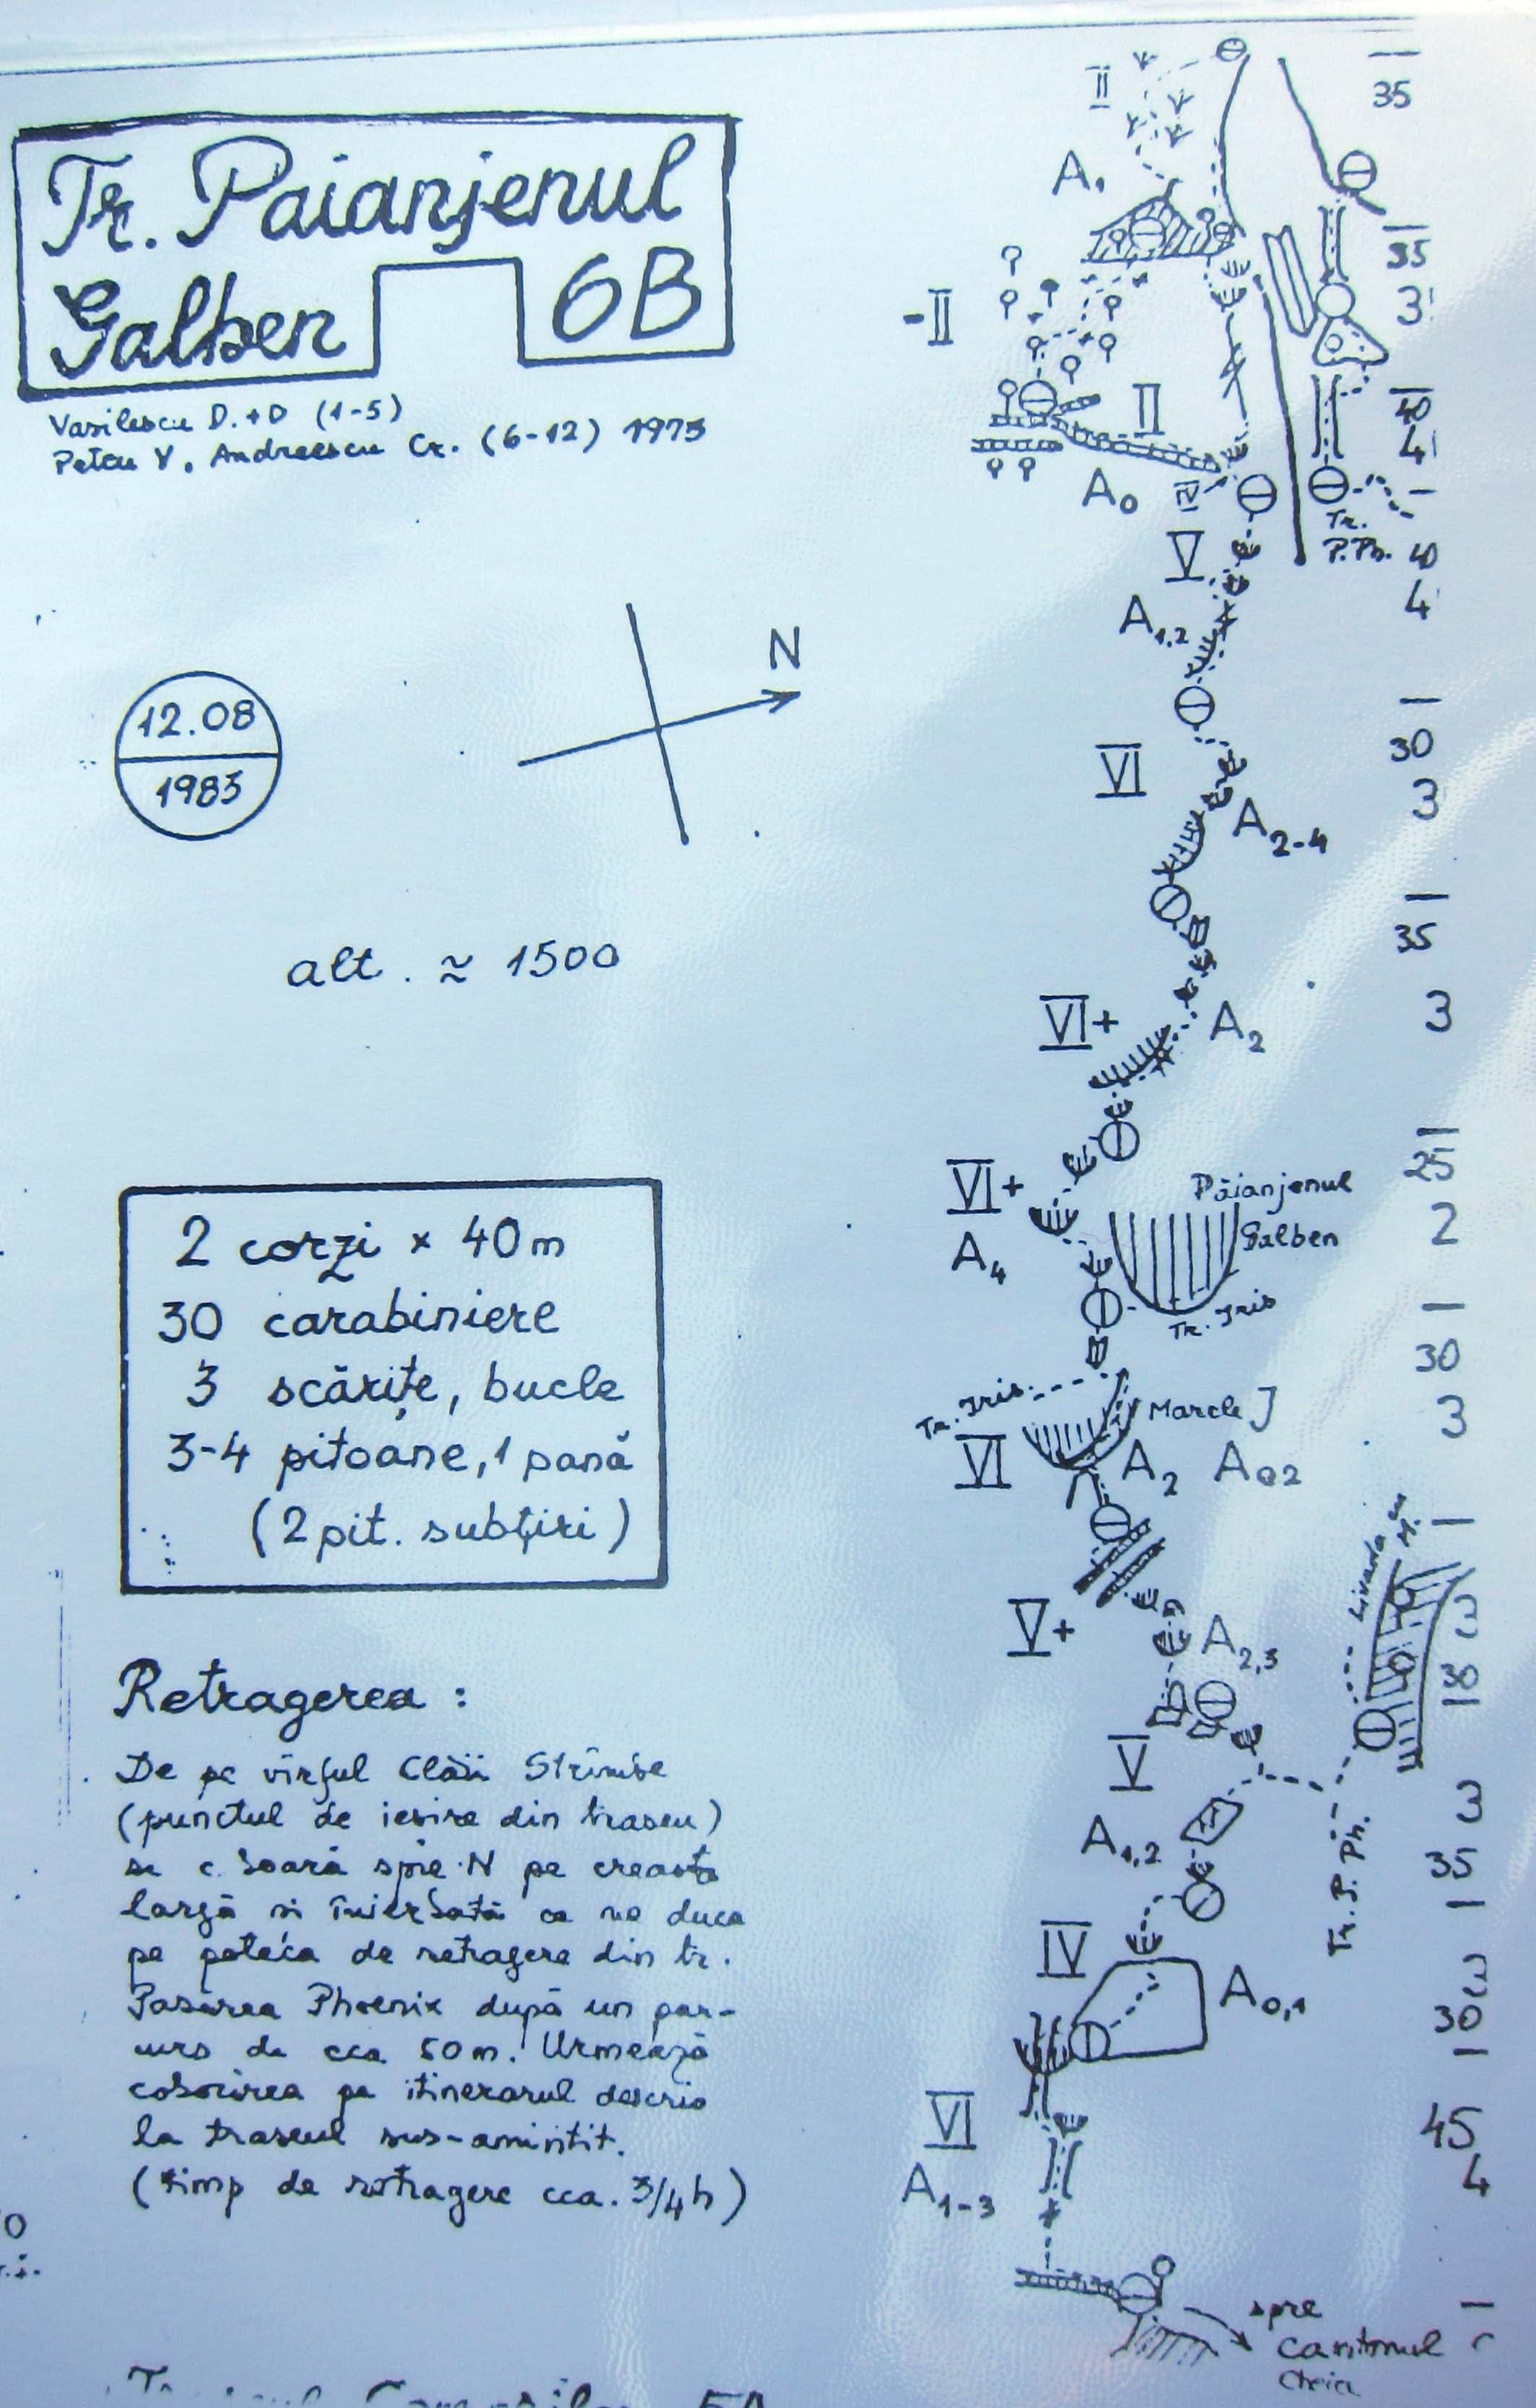 Tr. Paianjenul
Galben 6B
Vasilescu D.+D (1-5)
Petcu V. Andreescu Cr. (6-12) 1975
N
12.08
1983
alt. ≈ 1500
2 corzi × 40m
30 carabiniere
3 scărițe, bucle
3-4 pitoane, 1 pană
(2 pit. subțiri)
Retragerea:
De pe vîrful Clăii Strîmbe
(punctul de iesire din traseu)
se coboară spre N pe creasta
largă si înierbată ce ne duce
pe poteca de retragere din tr.
Pasărea Phoenix după un par-
curs de cca 50m. Urmează
coborirea pe itinerarul descris
la traseul sus-amintit.
(timp de retragere cca. 3/4h)
II
35
A1
35
3
-II
II
40
4
A0
IV
Tr.
P.Ph.
V
40
4
A1,2
30
VI
3
A2-4
35
VI+
A2
3
25
VI+
Păianjenul
Galben
2
A4
Tr. Iris
30
Tr. Iris
Marele J
3
VI
A2
A02
Livada cu
M.
3
V+
A2,3
30
V
3
A1,2
35
Tr. P. Ph.
IV
A0,1
3
30
VI
45
A1-3
4
spre
Cantonul
Cheia